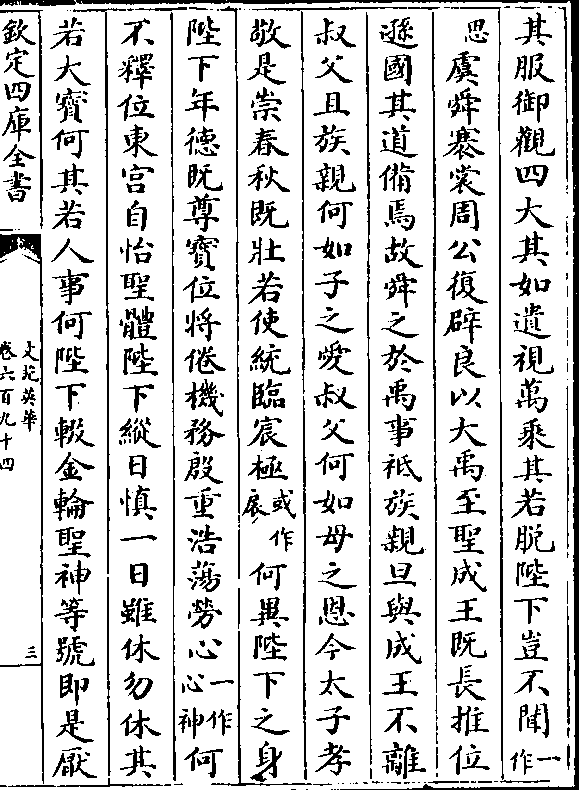 其服御觀四大其如遺視萬乘其若脱陛下豈不聞一作
思虞舜褰裳周公復辟良以大禹至聖成王既長推位
遜國其道備焉故舜之於禹事祇族親旦與成王不離
叔父且族親何如子之愛叔父何如母之恩今太子孝
敬是崇春秋既壯若使統臨宸極或作扆何異陛下之身
陛下年德既尊寶位將倦機務殷重浩蕩勞心一作心神何
不釋位東宫自怡聖體陛下縱日慎一日雖休勿休其
若大寶何其若人事何陛下輟金輪聖神等號即是厭
欽定四庫全書
文苑英華
卷六百九十四
三